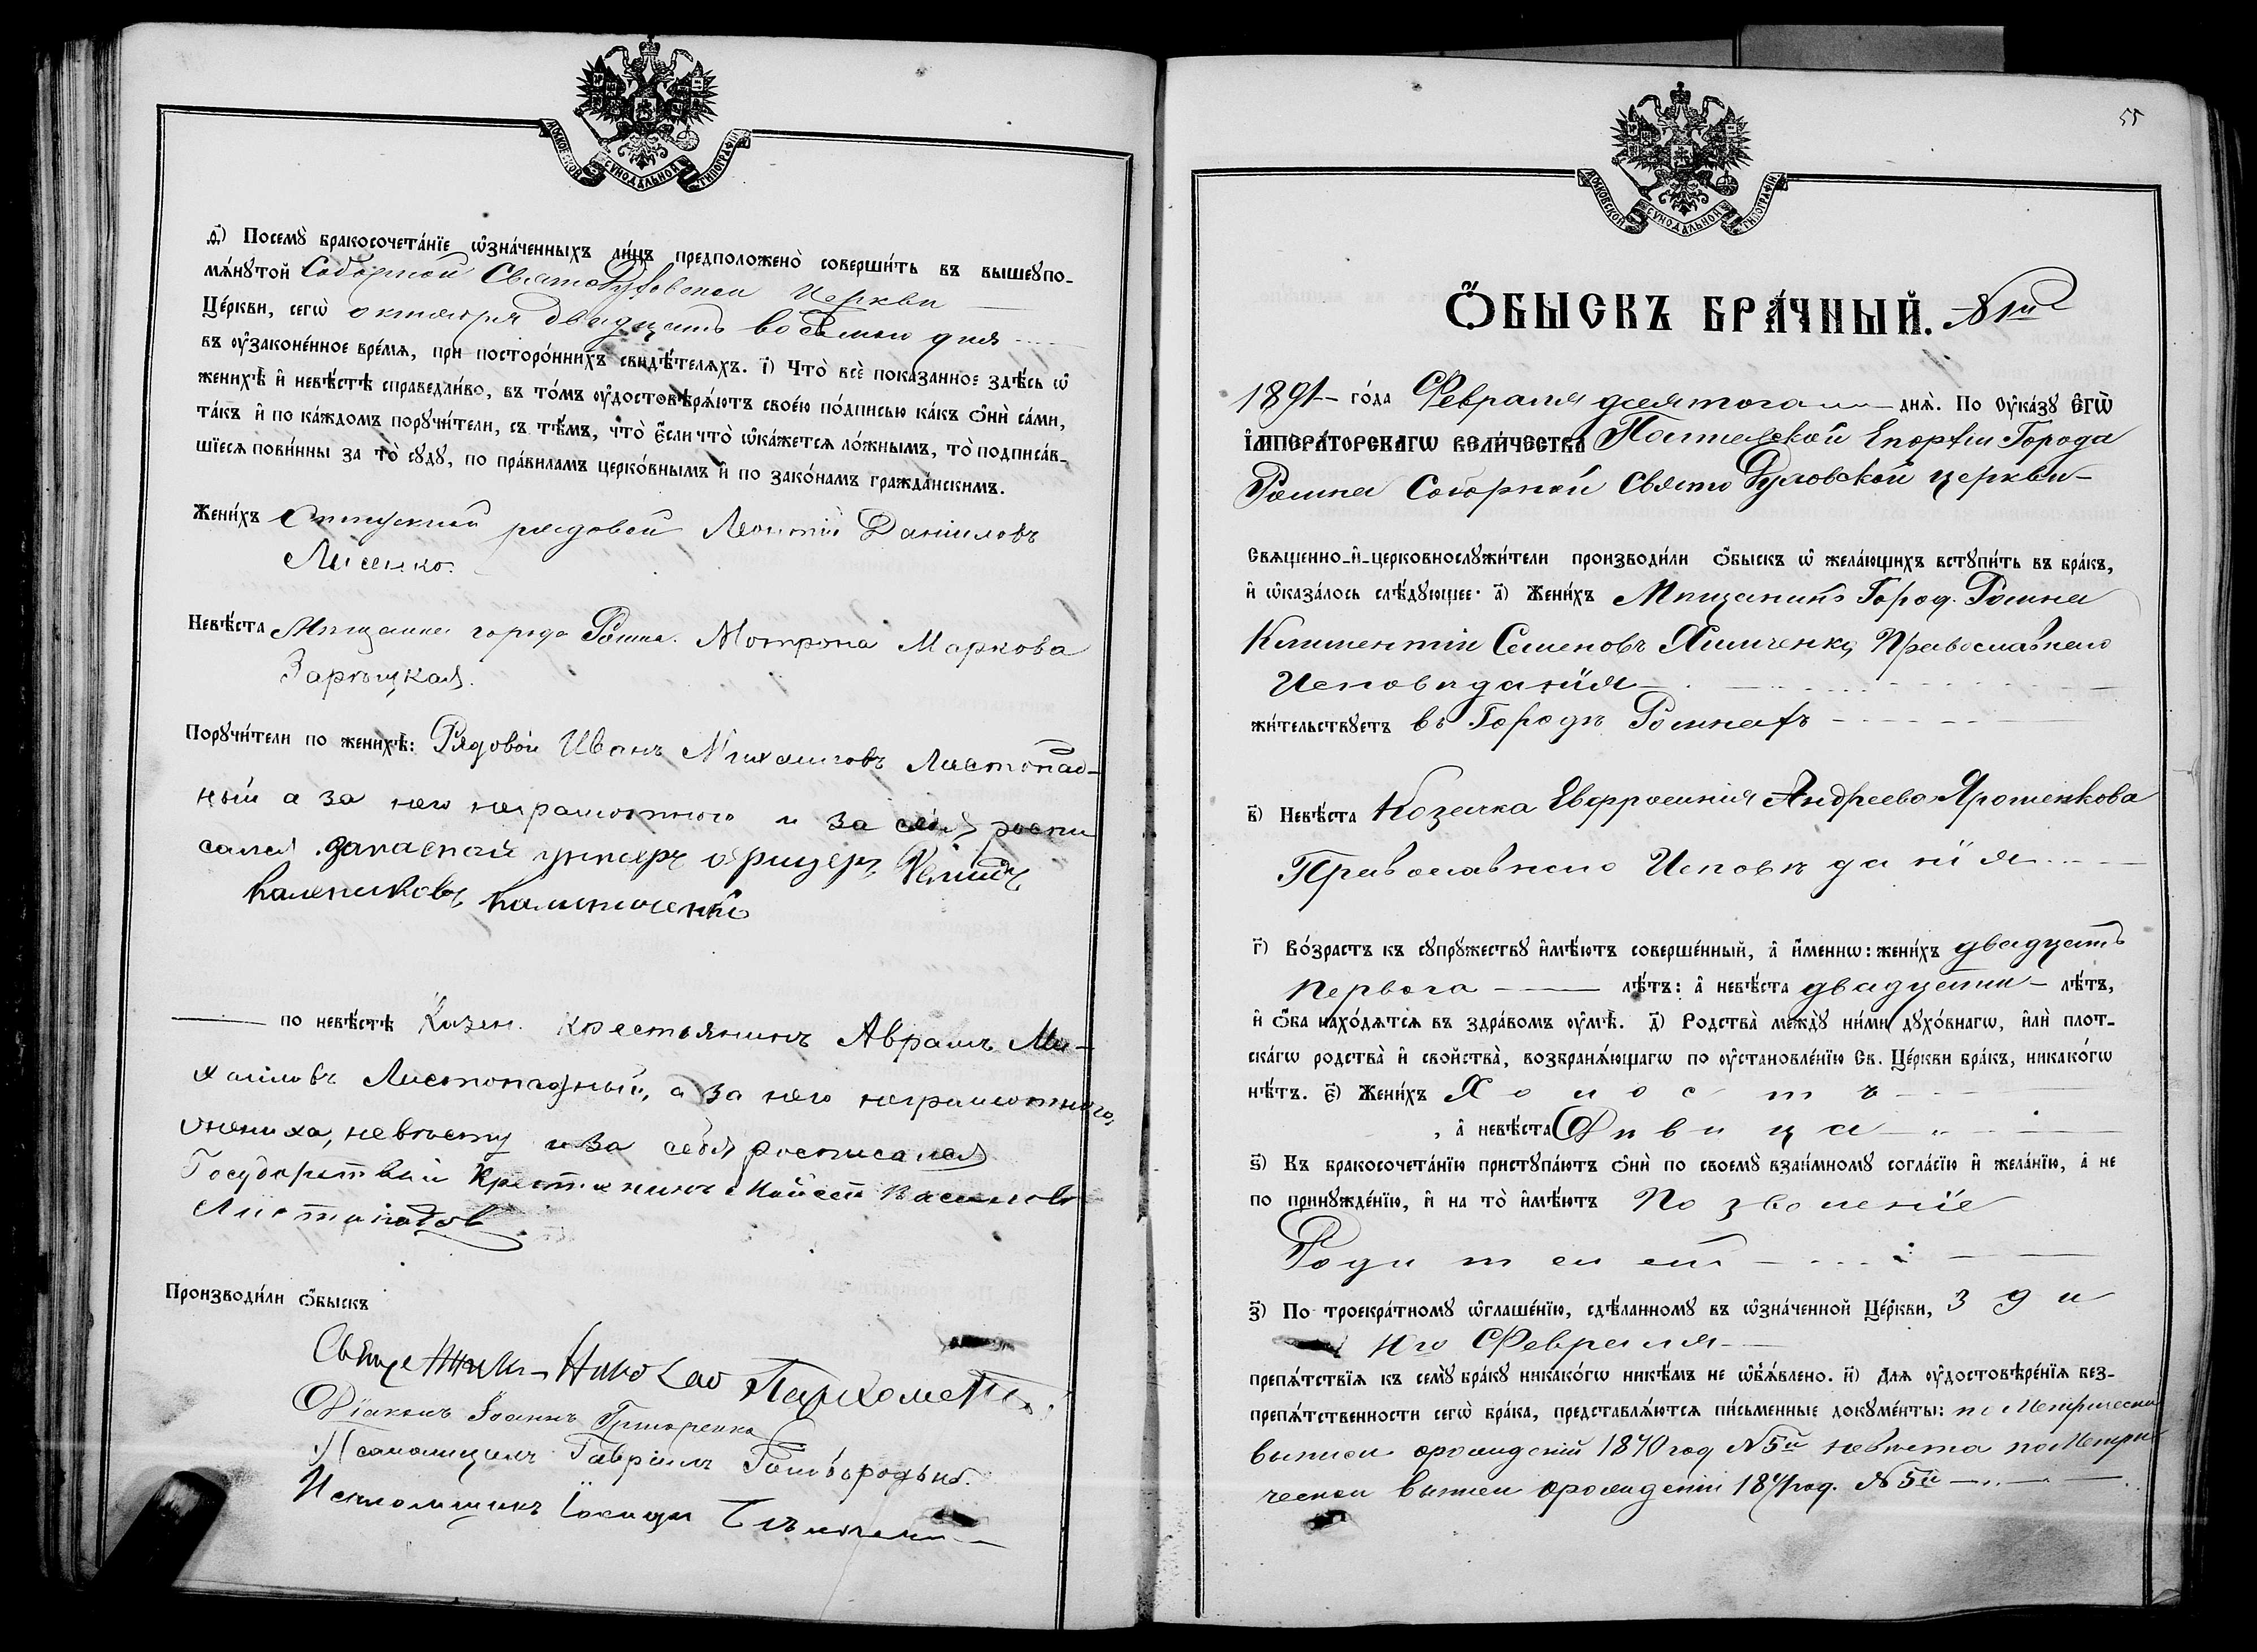 МОСКОВСКОЙ СУНОДАЛЬНОЙ ТИПОГРАФІИ
Посемꙋ̀ бракосочета́нїе ѡ҆зна́ченныхъ ли́цъ предположено̀ соверши́ть въ вышеꙋпо-
мѧ́нꙋтой Соборной Святодуховской Церкви
Це́ркви, сегѡ̀ октября двадцать восьмого дня
въ ᲂу҆законе́нное вре́мѧ, при посторо́ннихъ свидѣ́телѧхъ. і҃) Что̀ всѐ пока́занное здѣ́сь ѡ҆
женихѣ̀ и҆ невѣ́стѣ справедли́во, въ то́мъ ᲂу҆достовѣрѧ́ютъ свое́ю по́дписью ка́къ ѻ҆нѝ са́ми,
та́къ и҆ по ка́ждомъ порꙋчи́тели, съ тѣ́мъ, что̀ е҆́сли что̀ ѡ҆ка́жетсѧ ло́жнымъ, то̀ подписа́в-
шїесѧ пови́нны за то̀ сꙋдꙋ̀, по пра́виламъ церко́внымъ и҆ по зако́намъ гражда́нскимъ.
Жени́хъ Отпускной рядовой Леонтій Даніиловъ
Лисенко.
Невѣ́ста Мѣщанка города Ромна. Мотрона Маркова
Зарѣцкая.
Порꙋчи́тели по женихѣ̀: Рядовой Иванъ Михаиловъ Листопад-
ный а за него неграмотного и за себя роспи
сался запасной унтеръ офицеръ
Калениковъ
по невѣ́стѣ Казен. крестьянинъ Аврамъ Ми-
хаиловъ Листопадный, а за него неграмотного,
жениха, невѣсту и за себя росписался
Государствен Крестянинъ Моисей Василіовъ
Листопадов
Производи́ли ѻ҆́быскъ
Священникъ Николай Пархоменко
Діаконъ Іоаннъ Григоренко
Псаломщикъ Гавріилъ
Псаломщикъ
55
МОСКОВСКОЙ СУНОДАЛЬНОЙ ТИПОГРАФІИ
Ѻ҆́БЫСКЪ БРА́ЧНЫЙ. № 1й
1891 го́да Февраля десятого днѧ̀. По ᲂу҆ка́зꙋ Е҆ГѠ̀
І҆МПЕРА́ТОРСКАГѠ ВЕЛИ́ЧЕСТВА Полтавской Епархіи Города
Ромна Соборной Свято Духовской церкви
Свѧщенно-и҆-церковнослꙋжи́тели производи́ли ѻ҆́быскъ ѡ҆ жела́ющихъ встꙋпи́ть въ бра́къ,
и҆ ѡ҆каза́лось слѣ́дꙋющее: а҃) Жени́хъ Мѣщанинъ Город. Ромна
Климентій Семеновъ Химченко, Православнаго
Исповѣданія
жи́тельствꙋетъ въ Городѣ Ромнахъ
в҃) Невѣ́ста Козачка Евфросинія Андреева Ярошенкова
Православнаго Исповѣданія
г҃) Во́зрастъ къ сꙋпрꙋ́жествꙋ и҆мѣ́ютъ соверше́нный, а҆ и҆́меннѡ: жени́хъ двадцать
первого лѣ́тъ: а҆ невѣ́ста двадцати лѣ́тъ,
и҆ ѻ҆́ба нахо́дѧтсѧ въ здра́вомъ ᲂу҆мѣ̀. д҃) Родства̀ междꙋ̀ ни́ми дꙋхо́внагѡ, и҆лѝ плот-
ска́гѡ родства̀ и҆ свойства̀, возбранѧ́ющагѡ по ᲂу҆становле́нїю Св. Це́ркви бра́къ, никако́гѡ
нѣ́тъ. є҃) Жени́хъ Холостъ
, а҆ невѣ́ста Дѣвица
ѕ҃) Къ бракосочета́нїю пристꙋпа́ютъ ѻ҆нѝ по своемꙋ̀ взаи́мномꙋ согла́сїю и҆ жела́нїю, а҆ не
по принꙋжде́нїю, и҆ на то̀ и҆мѣ́ютъ Позволеніе
Родителей
з҃) По троекра́тномꙋ ѡ҆глаше́нїю, сдѣ́ланномꙋ въ ѡ҆зна́ченной Це́ркви, 3 9 и
10 Февраля
препѧ́тствїѧ къ семꙋ̀ бра́кꙋ никако́гѡ никѣ́мъ не ѡ҆б̾ѧ́влено. и҃) Длѧ ᲂу҆достовѣре́нїѧ без-
препѧ́тственности сегѡ̀ бра́ка, представлѧ́ютсѧ пи́сьменные докꙋме́нты: по Метрическ
выписи о рожденіи 1870 год № 5й невѣста по Метри
ческой выписи о рожденіи 1871 год. № 5й